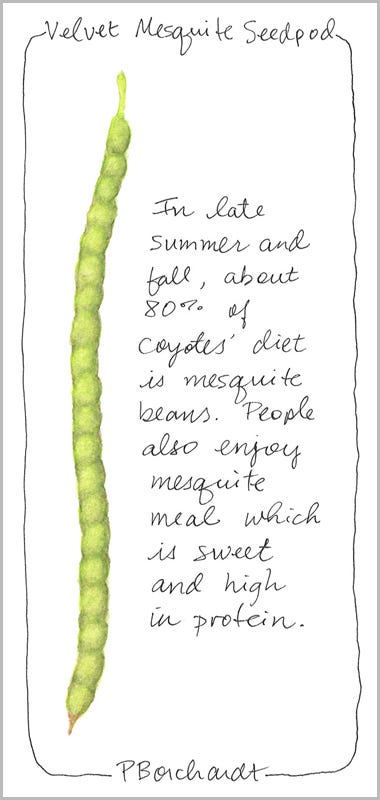 Velvet Mesquite Seedpod
In late
summer and
fall, about
80% of
coyotes' diet
is mesquite
beans. People
also enjoy
mesquite
meal which
is sweet
and high
in protein.
PBorchardt